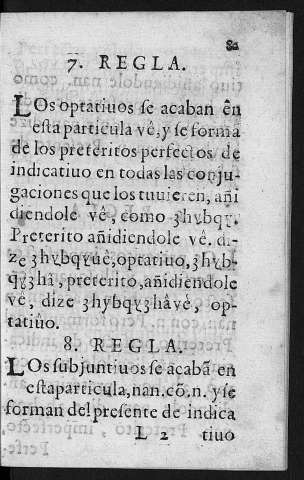 82
7. REGLA.
LOs optatiuos se acaban ên
esta particula vê, y se forma
de los preteritos perfectos de
indicatiuo en todas las conju-
gaciones que los tuuieren, añi
diendole vê, como ȝhɏbqɏ.
Preterito añidiendole vê. di-
ze ȝhɏbqɏuê, optatiuo, ȝhɏb-
qɏȝhî, preterito, añidiendole
vê, dize ȝhybqɏȝhâvê, op-
tatiûo.
8. REGLA.
LOs subjuntiuos se acabã en
esta particula, nan. cõ. n. y se
forman del presente de indica
L 2 tiuo